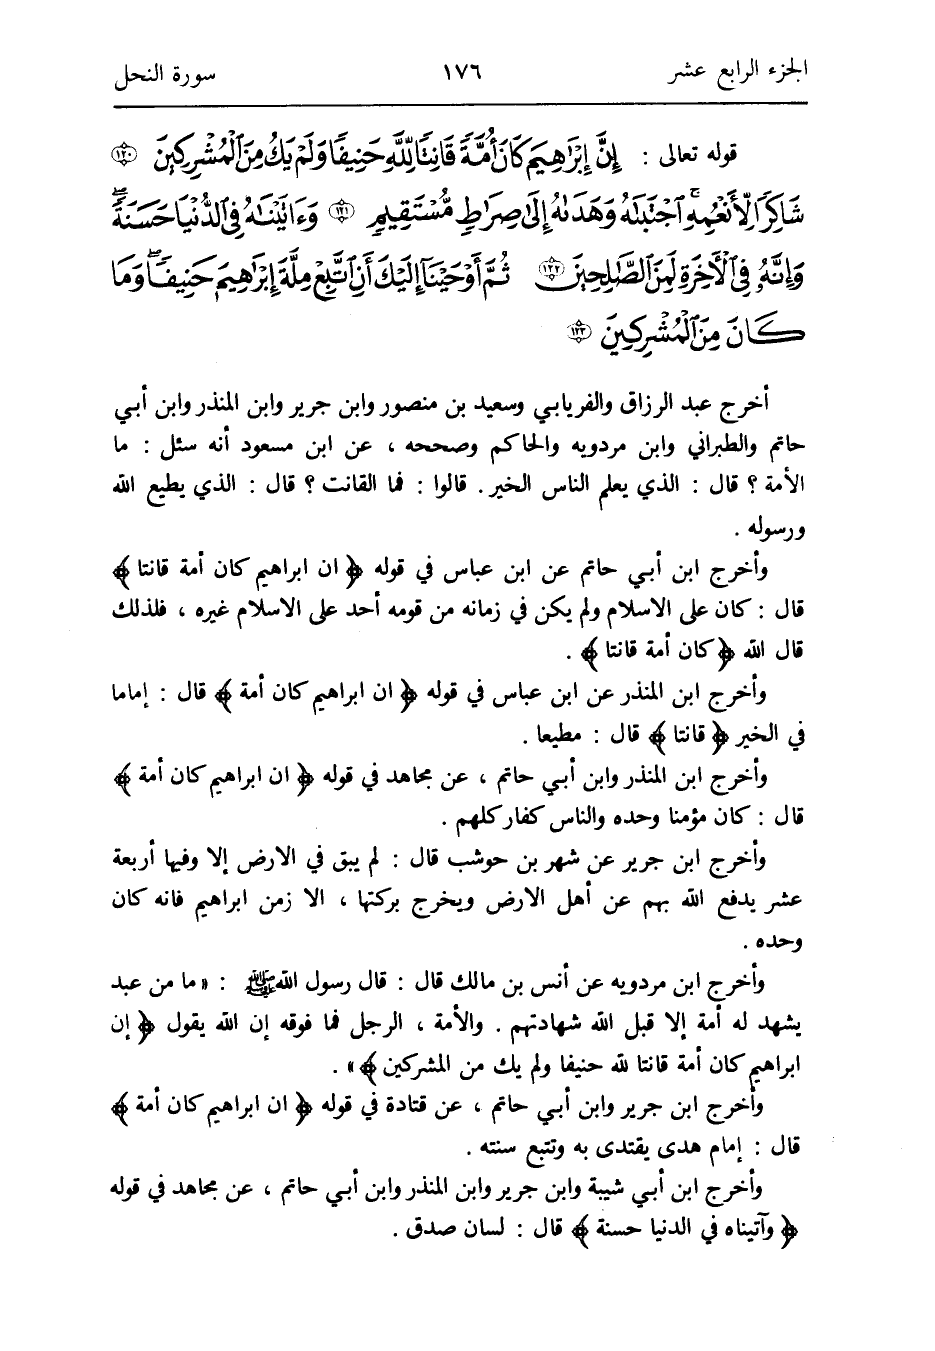 الجزء الرابع عشر ١٧٦ سورة النحل
قوله تعالى : إِنَّ إِبْرَٰهِيمَ كَانَ أُمَّةً قَانِتًا لِّلَّهِ حَنِيفًا وَلَمْ يَكُ مِنَ الْمُشْرِكِينَ ١٢٠
شَاكِرًا لِّأَنْعُمِهِ ۚ اجْتَبَىٰهُ وَهَدَىٰهُ إِلَىٰ صِرَٰطٍ مُّسْتَقِيمٍ ١٢١ وَءَاتَيْنَٰهُ فِي الدُّنْيَا حَسَنَةً ۖ
وَإِنَّهُ فِي الْأَخِرَةِ لَمِنَ الصَّٰلِحِينَ ١٢٢ ثُمَّ أَوْحَيْنَآ إِلَيْكَ أَنِ اتَّبِعْ مِلَّةَ إِبْرَٰهِيمَ حَنِيفًا ۖ وَمَا
كَانَ مِنَ الْمُشْرِكِينَ ١٢٣
أخرج عبد الرزاق والفريابي وسعيد بن منصور وابن جرير وابن المنذر وابن أبي
حاتم والطبراني وابن مردويه والحاكم وصححه ، عن ابن مسعود أنه سئل : ما
الأمة ؟ قال : الذي يعلم الناس الخير . قالوا : فما القانت ؟ قال : الذي يطيع الله
ورسوله .
وأخرج ابن أبي حاتم عن ابن عباس في قوله ﴿ ان ابراهيم كان أمة قانتا ﴾
قال : كان على الاسلام ولم يكن في زمانه من قومه أحد على الاسلام غيره ، فلذلك
قال الله ﴿ كان أمة قانتا ﴾ .
وأخرج ابن المنذر عن ابن عباس في قوله ﴿ ان ابراهيم كان أمة ﴾ قال : إماما
في الخير ﴿ قانتا ﴾ قال : مطيعا .
وأخرج ابن المنذر وابن أبي حاتم ، عن مجاهد في قوله ﴿ ان ابراهيم كان أمة ﴾
قال : كان مؤمنا وحده والناس كفار كلهم .
وأخرج ابن جرير عن شهر بن حوشب قال : لم يبق في الارض إلا وفيها أربعة
عشر يدفع الله بهم عن أهل الارض ويخرج بركتها ، الا زمن ابراهيم فانه كان
وحده .
وأخرج ابن مردويه عن أنس بن مالك قال : قال رسول الله ﷺ : « ما من عبد
يشهد له أمة إلا قبل الله شهادتهم . والأمة ، الرجل فما فوقه إن الله يقول ﴿ إن
ابراهيم كان أمة قانتا لله حنيفا ولم يك من المشركين ﴾ » .
وأخرج ابن جرير وابن أبي حاتم ، عن قتادة في قوله ﴿ ان ابراهيم كان أمة ﴾
قال : إمام هدى يقتدى به وتتبع سنته .
وأخرج ابن أبي شيبة وابن جرير وابن المنذر وابن أبي حاتم ، عن مجاهد في قوله
﴿ وآتيناه في الدنيا حسنة ﴾ قال : لسان صدق .